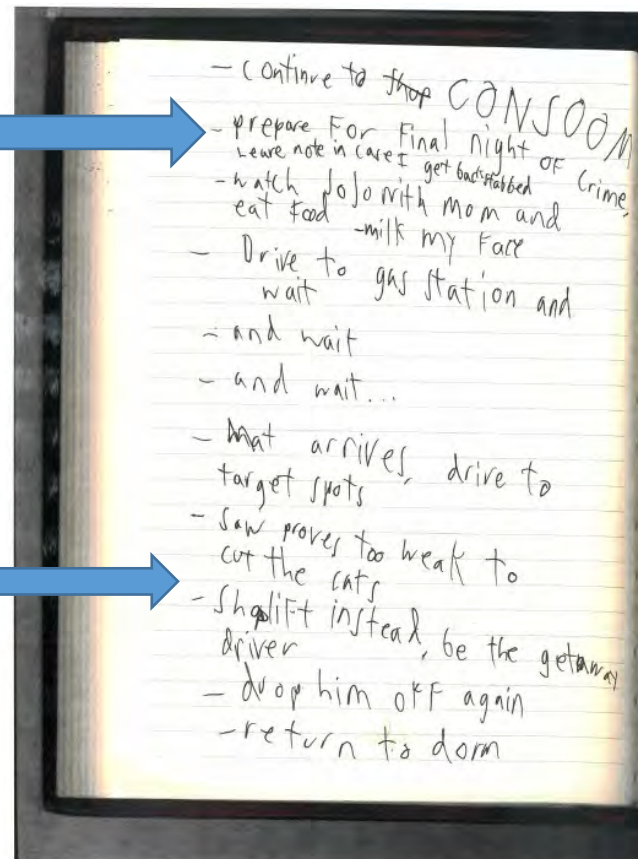 - Continue to shop CONSOOM
- prepare For Final night of Crime,
Leave note in case I get backstabbed
- watch JoJo with mom and
eat food - milk my Face
- Drive to gas station and
wait
- and wait
- and wait...
- Mat arrives, drive to
target spots
- Saw proves too weak to
cut the cats
- ShopliFt instead, be the getaway
driver
- drop him oFF again
- return to dorm